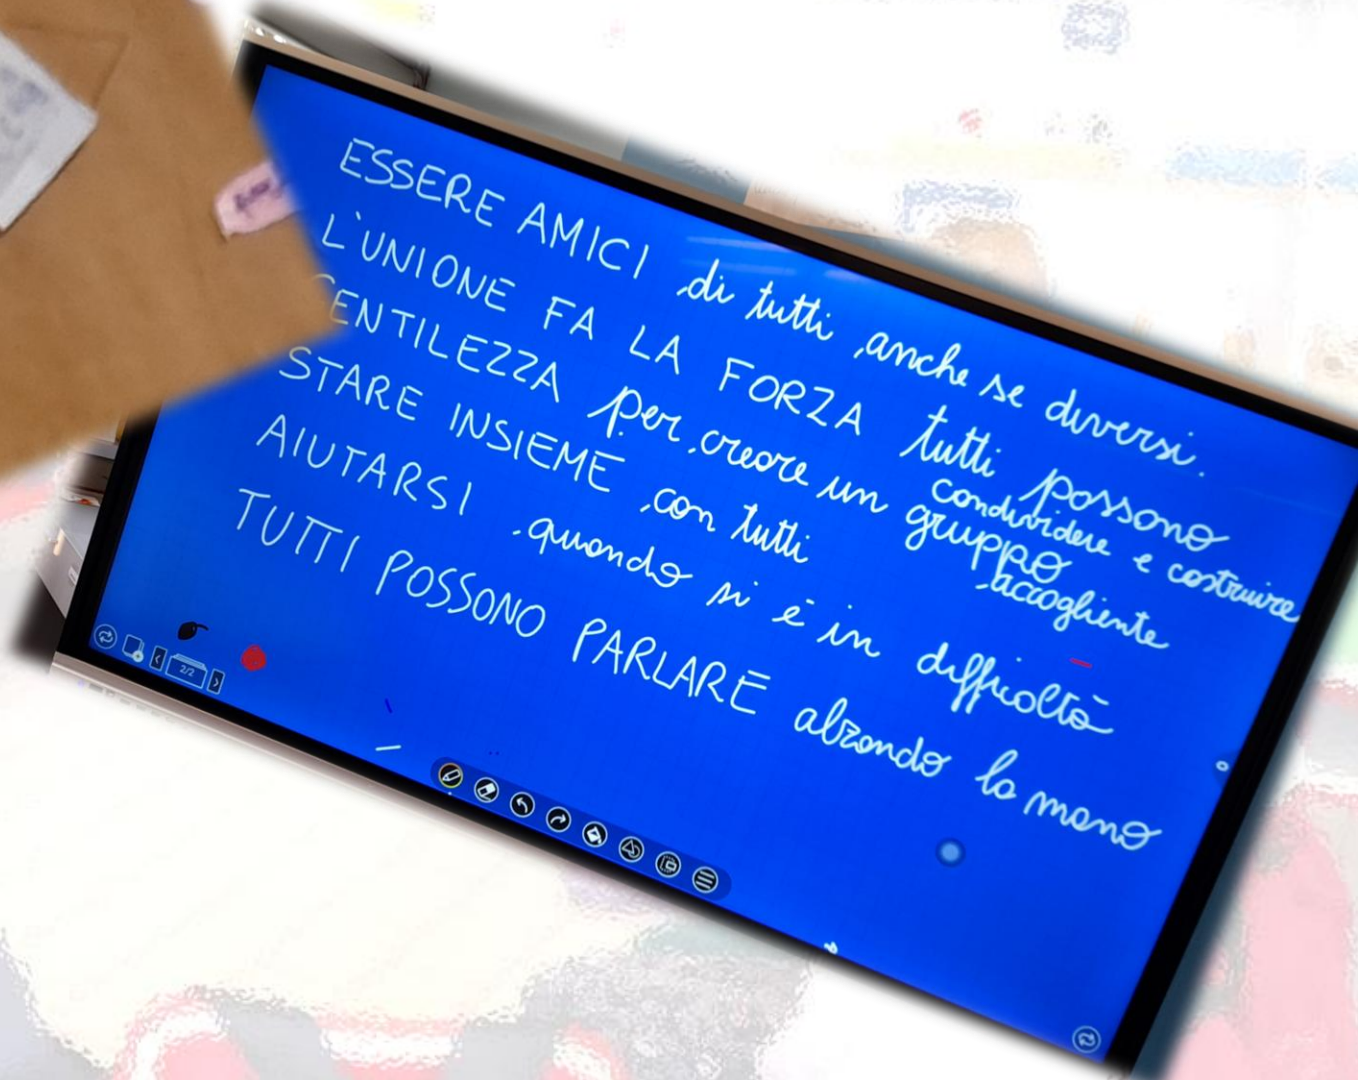 ESSERE AMICI di tutti anche se diversi.
L'UNIONE FA LA FORZA tutti possono
condividere e costruire
GENTILEZZA per creare un gruppo
accogliente
STARE INSIEME con tutti
AIUTARSI quando si è in difficoltà
TUTTI POSSONO PARLARE alzando la mano
2/2